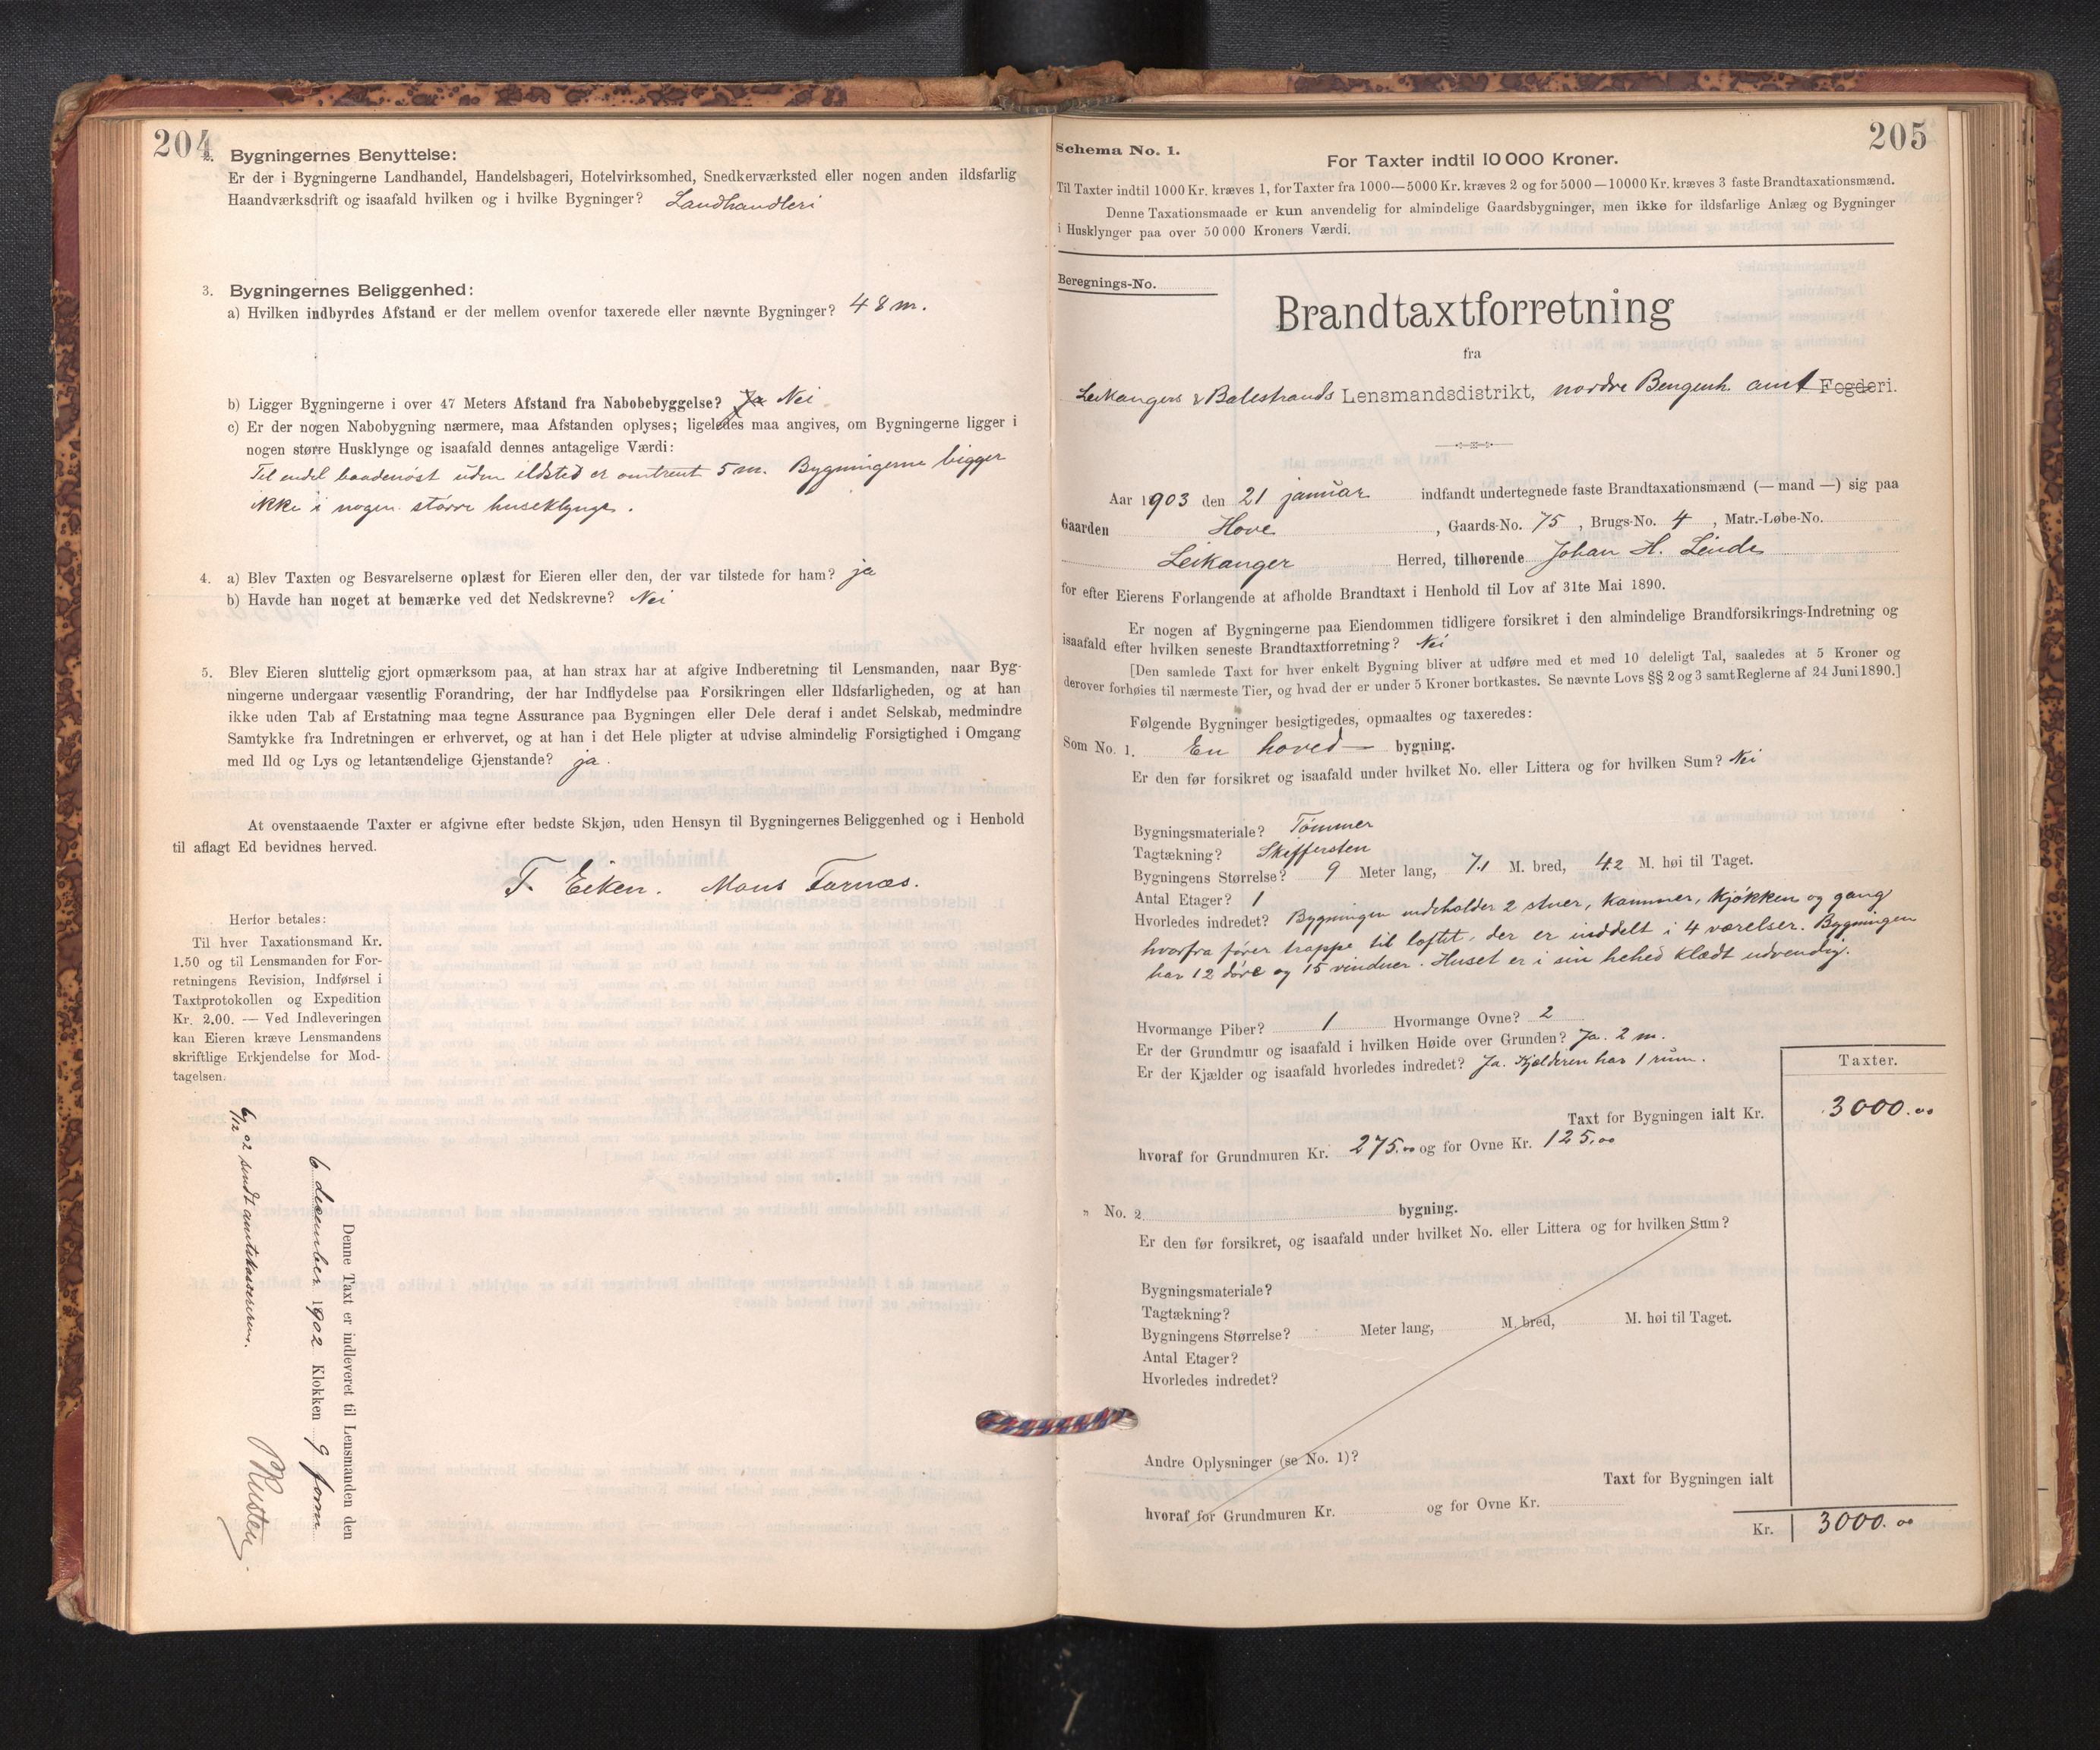 204
2. Bygningernes Benyttelse:
Er der i Bygningerne Landhandel, Handelsbageri, Hotelvirksomhed, Snedkerværksted eller nogen anden ildsfarlig
Haandværksdrift og isaafald hvilken og i hvilke Bygninger? Landhandleri
3. Bygningernes Beliggenhed:
a) Hvilken indbyrdes Afstand er der mellem ovenfor taxerede eller nævnte Bygninger? 48 m.
b) Ligger Bygningerne i over 47 Meters Afstand fra Nabobebyggelse? Ja Nei
c) Er der nogen Nabobygning nærmere, maa Afstanden oplyses; ligeledes maa angives, om Bygningerne ligger i
nogen større Husklynge og isaafald dennes antagelige Værdi:
Til endel baadenøst uden ildsted er omtrent 5 m. Bygningerne ligger
ikke i nogen større huseklynge.
4. a) Blev Taxten og Besvarelserne oplæst for Eieren eller den, der var tilstede for ham? ja
b) Havde han noget at bemærke ved det Nedskrevne? Nei
5. Blev Eieren sluttelig gjort opmærksom paa, at han strax har at afgive Indberetning til Lensmanden, naar Byg-
ningerne undergaar væsentlig Forandring, der har Indflydelse paa Forsikringen eller Ildsfarligheden, og at han
ikke uden Tab af Erstatning maa tegne Assurance paa Bygningen eller Dele deraf i andet Selskab, medmindre
Samtykke fra Indretningen er erhvervet, og at han i det Hele pligter at udvise almindelig Forsigtighed i Omgang
med Ild og Lys og letantændelige Gjenstande? ja.
At ovenstaaende Taxter er afgivne efter bedste Skjøn, uden Hensyn til Bygningernes Beliggenhed og i Henhold
til aflagt Ed bevidnes herved.
T. Eiken. Mons Farnæs.
Herfor betales:
Til hver Taxationsmand Kr.
1.50 og til Lensmanden for For-
retningens Revision, Indførsel i
Taxtprotokollen og Expedition
Kr. 2.00. — Ved Indleveringen
kan Eieren kræve Lensmandens
skriftlige Erkjendelse for Mod-
tagelsen.
Denne Taxt er indleveret til Lensmanden den
6 december 1902 Klokken 9 form
6/12 02 sendt amtskassereren.
205
Schema No. 1.
For Taxter indtil 10 000 Kroner.
Til Taxter indtil 1000 Kr. kræves 1, for Taxter fra 1000—5000 Kr. kræves 2 og for 5000—10000 Kr. kræves 3 faste Brandtaxationsmænd.
Denne Taxationsmaade er kun anvendelig for almindelige Gaardsbygninger, men ikke for ildsfarlige Anlæg og Bygninger
i Husklynger paa over 50 000 Kroners Værdi.
Beregnings-No.
Brandtaxtforretning
fra
Leikangers & Balestrands Lensmandsdistrikt, nordre Bergenh. amt Fogderi.
Aar 1903 den 21 januar indfandt undertegnede faste Brandtaxationsmænd (— mand —) sig paa
Gaarden Hove, Gaards-No. 75, Brugs-No. 4, Matr.-Løbe-No.
Leikanger Herred, tilhørende Johan H. Linde
for efter Eierens Forlangende at afholde Brandtaxt i Henhold til Lov af 31te Mai 1890.
Er nogen af Bygningerne paa Eiendommen tidligere forsikret i den almindelige Brandforsikrings-Indretning og
isaafald efter hvilken seneste Brandtaxtforretning? Nei
[Den samlede Taxt for hver enkelt Bygning bliver at udføre med et med 10 deleligt Tal, saaledes at 5 Kroner og
derover forhøies til nærmeste Tier, og hvad der er under 5 Kroner bortkastes. Se nævnte Lovs §§ 2 og 3 samt Reglerne af 24 Juni 1890.]
Følgende Bygninger besigtigedes, opmaaltes og taxeredes:
Som No. 1. En hoved— bygning.
Er den før forsikret og isaafald under hvilket No. eller Littera og for hvilken Sum? Nei
Bygningsmateriale? Tømmer
Tagtækning? Skiffersten
Bygningens Størrelse? 9 Meter lang, 7.1 M. bred, 4.2 M. høi til Taget.
Antal Etager? 1
Hvorledes indredet? Bygningen indeholder 2 stuer, kammer, kjøkken og gang
hvorfra fører trappe til loftet, der er inddelt i 4 værelser. Bygningen
har 12 døre og 15 vinduer. Huset er i sin helhed klædt udvendig.
Hvormange Piber? 1 Hvormange Ovne? 2
Er der Grundmur og isaafald i hvilken Høide over Grunden? Ja. 2 m.
Er der Kjælder og isaafald hvorledes indredet? Ja. Kjælderen har 1 rum.
Taxter.
Taxt for Bygningen ialt Kr. 3000.00
hvoraf for Grundmuren Kr. 275.00 og for Ovne Kr. 125.00
" No. 2 bygning.
Er den før forsikret, og isaafald under hvilket No. eller Littera og for hvilken Sum?
Bygningsmateriale?
Tagtækning?
Bygningens Størrelse? Meter lang, M. bred, M. høi til Taget.
Antal Etager?
Hvorledes indredet?
Andre Oplysninger (se No. 1)?
Taxt for Bygningen ialt
hvoraf for Grundmuren Kr. og for Ovne Kr.
Kr. 3000.00